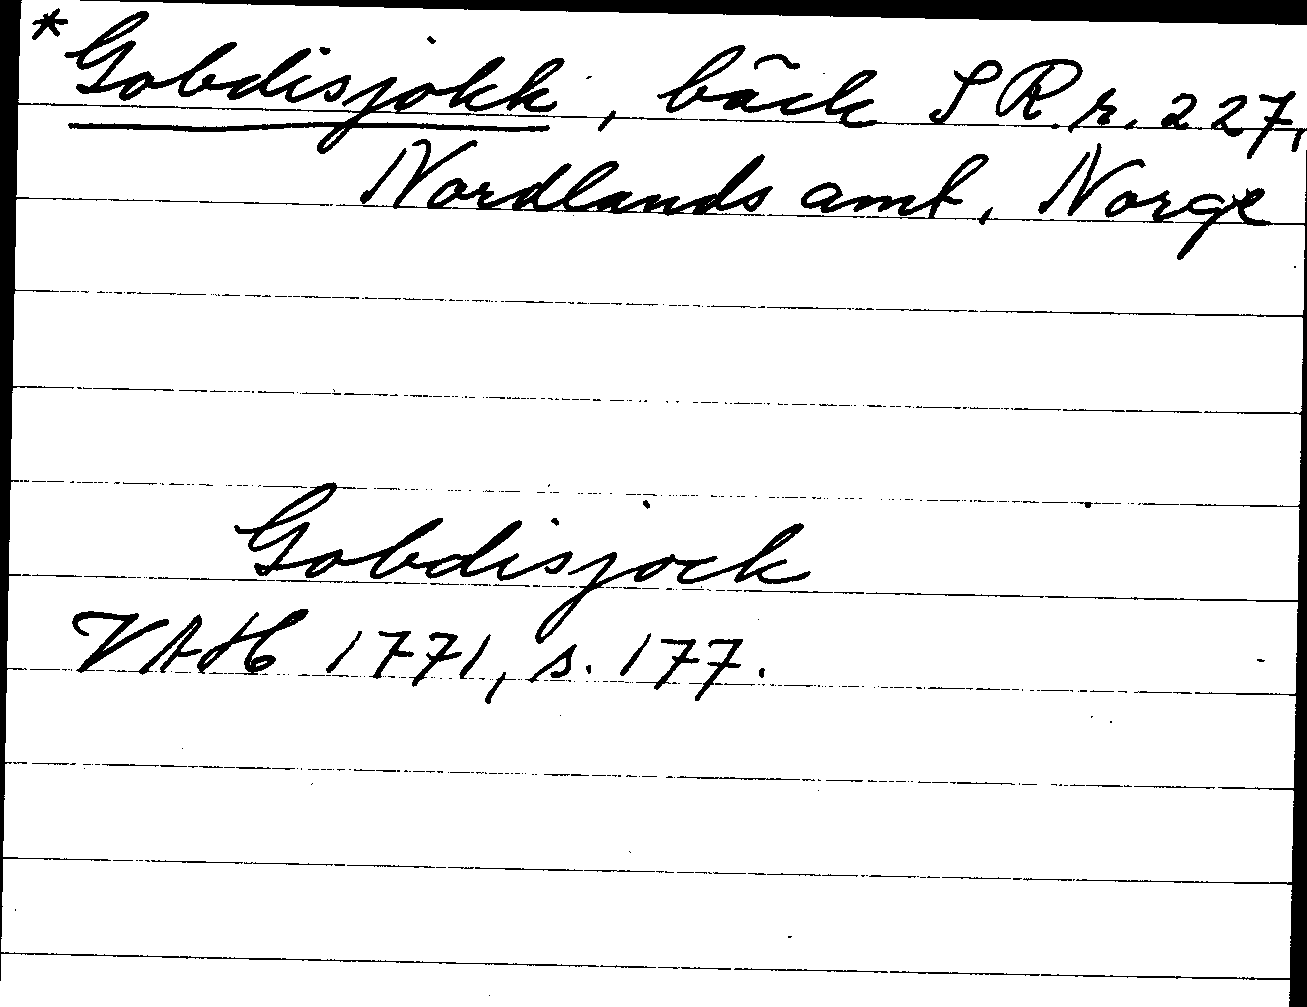 *Gobdisjokk, bäck S R.r. 227,
Nordlands amt, Norge
Gobdisjock
VAH 1771, s. 177.